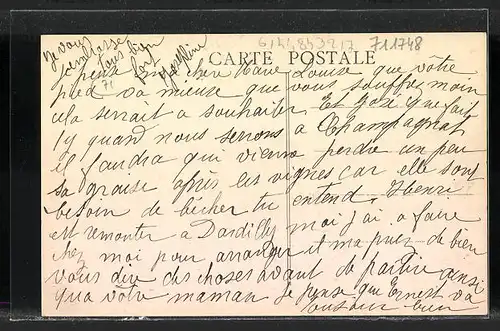 je vous
embrasse
tous bien
fort
CARTE POSTALE
6144843917 711748
71
Je pense ma chere Marie Louise que vôtre
pied va mieuse que vous souffre moin
cela serrait a souhaiter. Et Goz que fait
ly quand nous serrons a Champagnat
il faudra qui vienne perdre un peu
sa graise après les vignes car elle sont
besoin de bêcher tu entend. Henri
est remonter a Dardilly moi j'ai a faire
chez moi pour arranger et ma puis de bien
vous dire des choses avant de partir ainsi
qua vôtre maman je pense que Ernest va
toujours bien